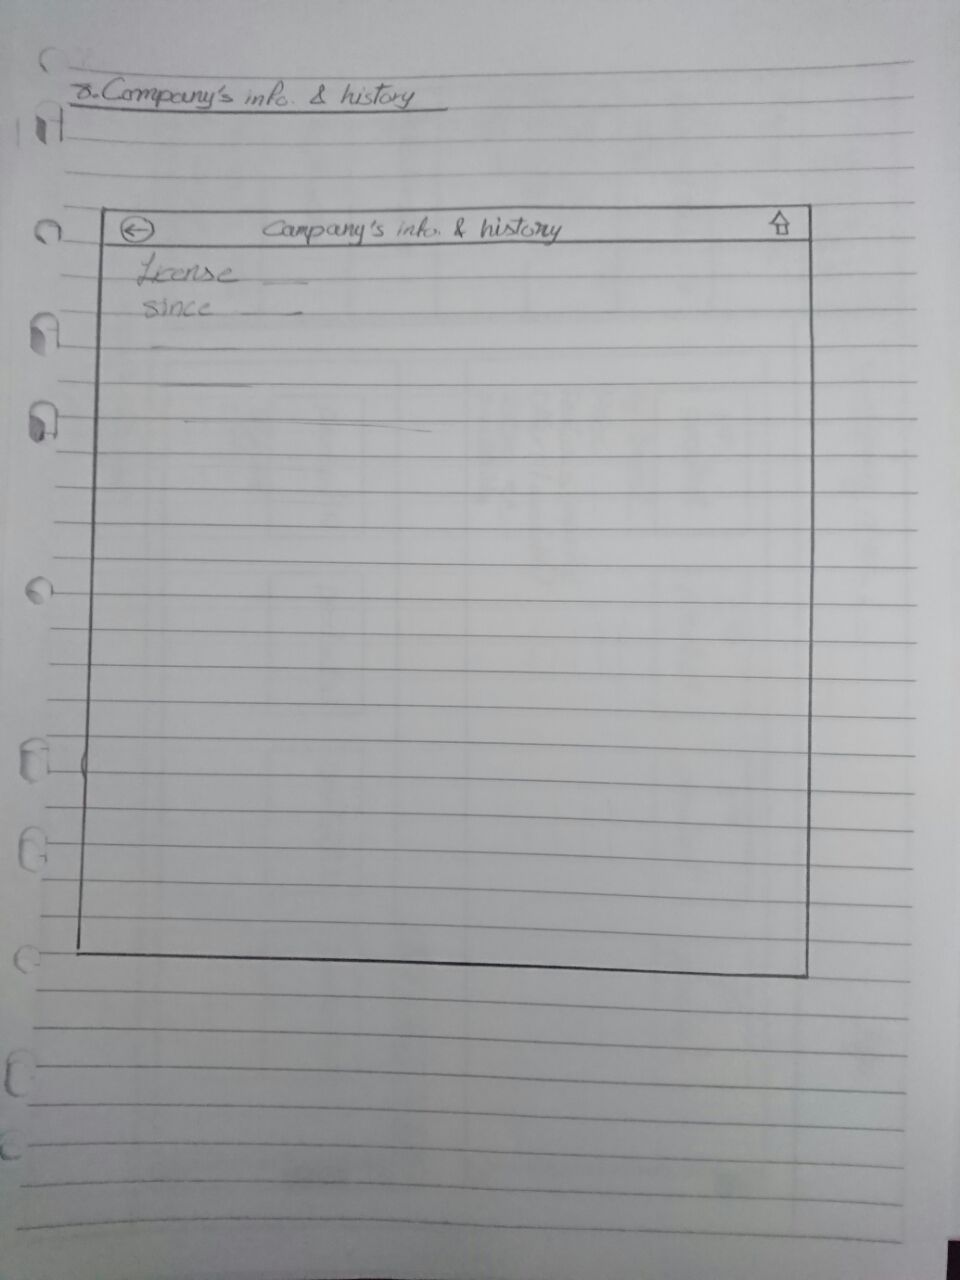 8. Company's info. & history
Company's info. & history
License
since